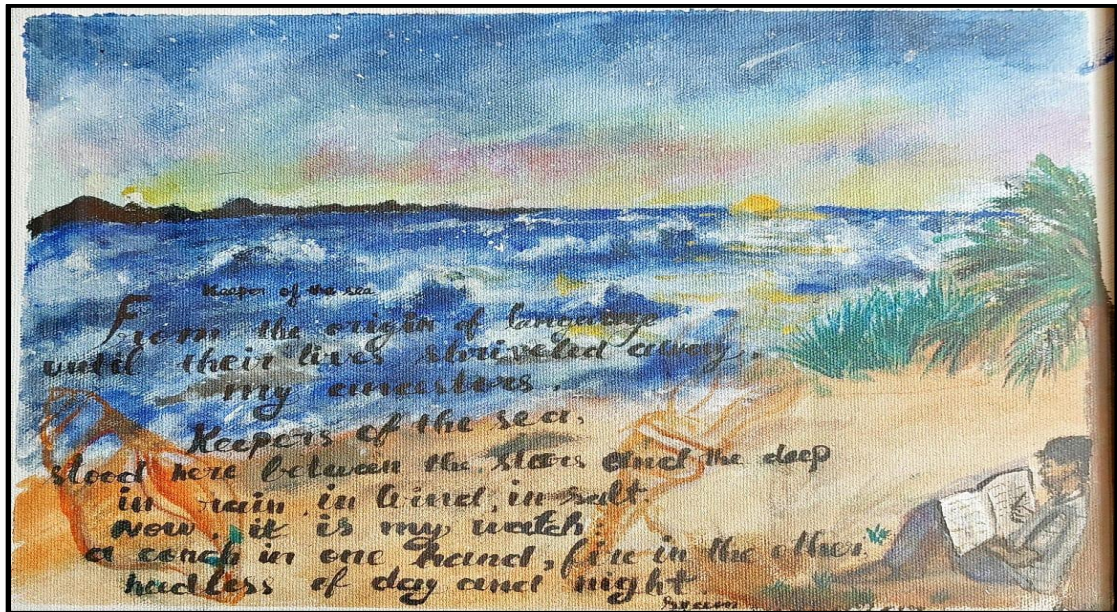 Keeper of the sea
From the origin of language
until their lives shriveled away,
my ancestors.
Keepers of the sea,
stood here between the stars and the deep
in rain, in wind, in salt.
now, it is my watch:
a conch in one hand, fire in the other.
hadless of day and night.